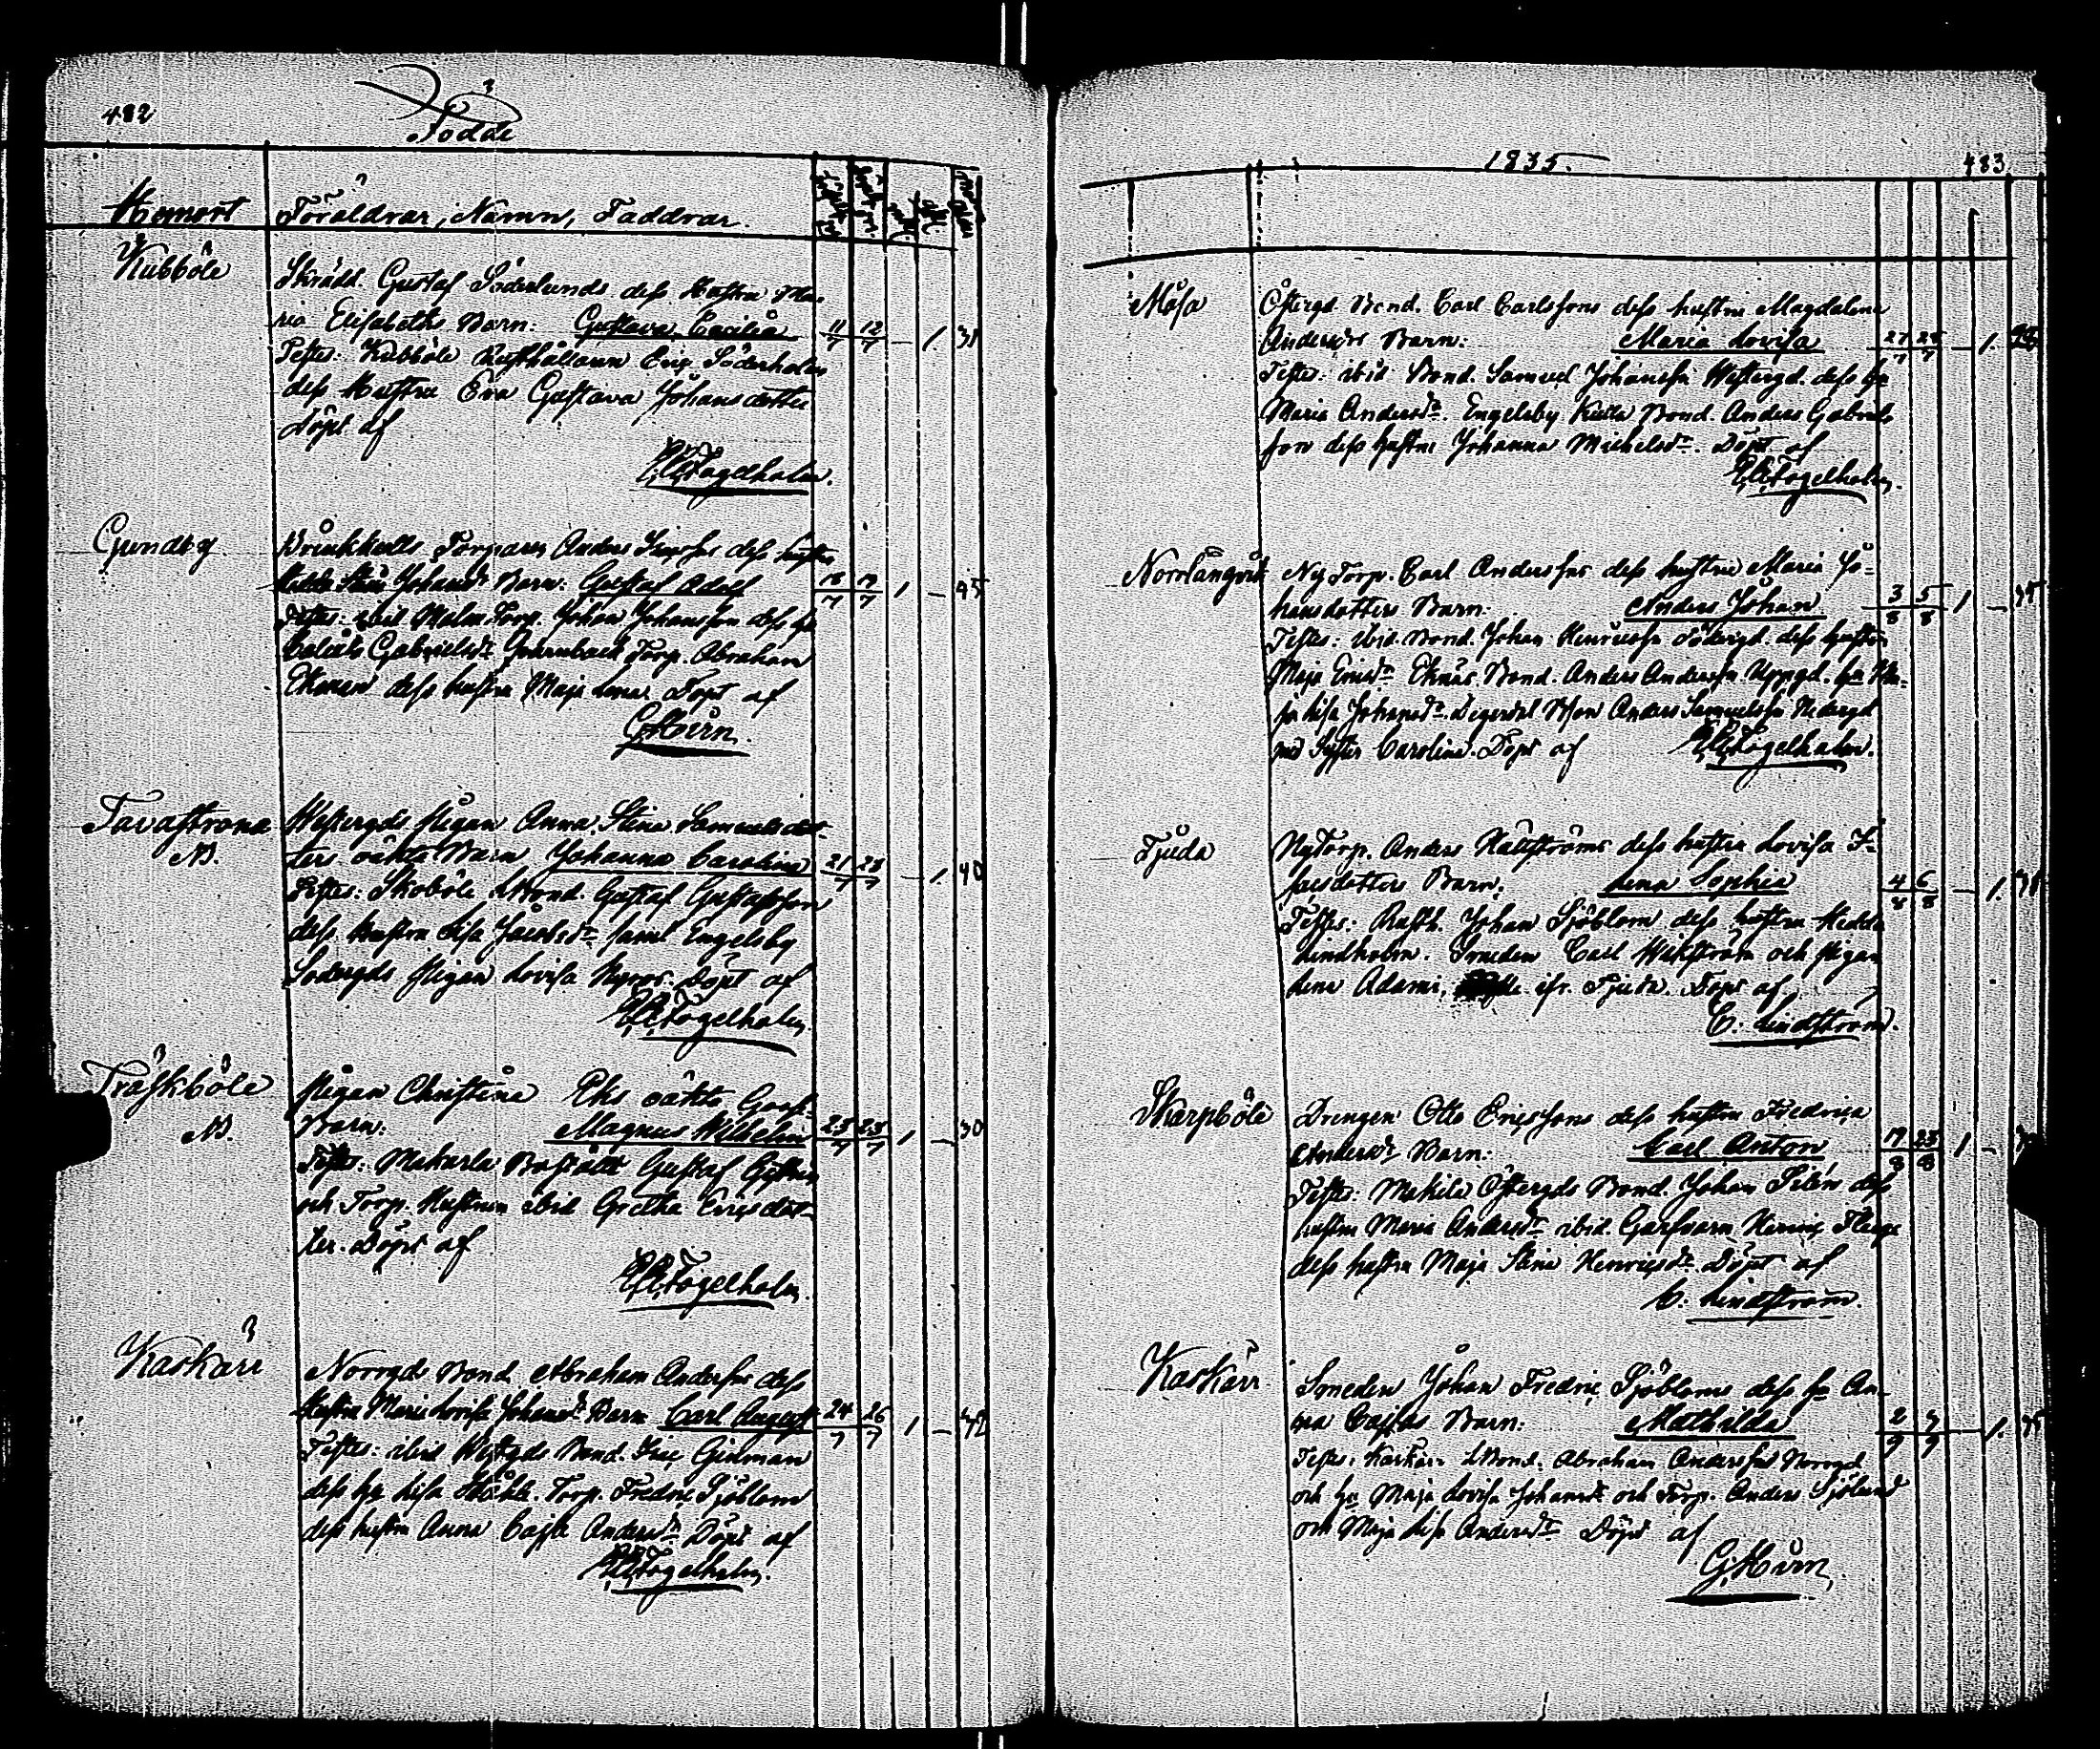 482
Födde
Hemort Föräldrar, Namn, Faddrar.
Kubböle
Skrädd. Gustaf Söderlunds dess Hustru Ma-
ria Elisabeths Barn: Gustava Cecilia 11/7 12/7 — 1. 31
Testes: Kubböle Rusthållaren Eric Söderholm
dess Hustru Eva Gustava Johansdotter
döpt af
Fogelholm.
Gundby
Torparen Anders dess hustru
Stina Johansdr Barn: Gustaf Adolf 18/7 19/7 1 — 45
Testes: ibid Malm Torp. Johan Johansson dess hu
Gabrielsdr Torp. Abraham
Ekman dess hustru Maja Lena Döpt af
G. Hirn.
Tavastrona Westergds Pigan Anna Stina Samuelsdot-
N. ters oäkta Barn Johanna Carolina 21/7 23/7 — 1. 40
Testes: Skoböle Bond. Gustaf Gustafsson
dess hustru Lisa Jacobsdr samt Engelsby
Södergds Pigan Lovisa Döpt af
Fogelholm.
Träskböle Pigan Christina Eks oäkta Gosse-
N. Barn: Magnus Wilhelm 23/7 23/7 1 — 30
Testes: Makarla Gustaf
och Torp. Hustrun ibid Gretha Ericsdot-
ter. Döpt af
Fogelholm.
Kaskärr
Norrgds Bond Abraham Anderssons dess
Hustru Maria Lovisa Johansdr Barn Carl August 24/7 26/7 1 — 42
Testes: ibid Westgds Bond. Isac
dess hu Lisa Torp. Fredric Sjöblom
dess hustru Anna Cajsa Andersdr Döpt af
Fogelholm.
1835. 483
Måsa Östergd Bond. Carl Carlssons dess hustru Magdalena
Andersdrs Barn: Maria Lovisa 27/7 28/7 — 1.
Testes: ibid Bond. Samuel Johansson Westergd. dess hu
Maria Andersdr. Engelsby Bond. Anders Gabriels-
son dess hustru Johanna Michelsdr. Döpt af
Fogelholm.
Norrlångvik Ny Torp. Carl Anderssons dess hustru Maria Jo-
hansdotters Barn: Anders Johan 3/8 5/8 1 —
Testes: ibid. Bond. Johan Henricsson Södergd. dess hustru
Maja Ericsdr Eknäs Bond. Anders Andersson Uppgd. hu
Lisa Johansdr. Anders Samuelsson Nedergd
med Syster Carolina. Döpt af Fogelholm.
Tjuda NyTorp. Anders Nällströms dess hustru Lovisa I-
sacsdotters Barn. Lena Sophia 4/8 6/8 — 1.
Testes: Rusth. Johan Sjöblom dess hustru Hedda
Lindholm. Smeden Carl Wikström och Pigan
Lena Adami, ifr. Tjuda. Döpt af
C. Lindström.
Skarpböle Drengen Otto Ericssons dess hustru Fredrica
Andersdr Barn: Carl Anton 19/8 23/8 1 —
Testes: Mekila Östergds Bond. Johan Siléns dess
hustru Maria Andersdr ibid. Garfvarn Henric
dess hustru Maja Stina Henricsdr. Döpt af
C. Lindström.
Kaskärr Smeden Johan Fredric Sjöbloms dess hu An-
na Cajsas Barn: Mathilda 2/9 3/9 — 1.
Testes. Kaskärr Bond. Abraham Anderssons Norrgd
och hu Maja Lovisa Johansdr och Torp. Anders Sjölund
och Maja Lisa Andersdr Döpt af
G. Hirn.